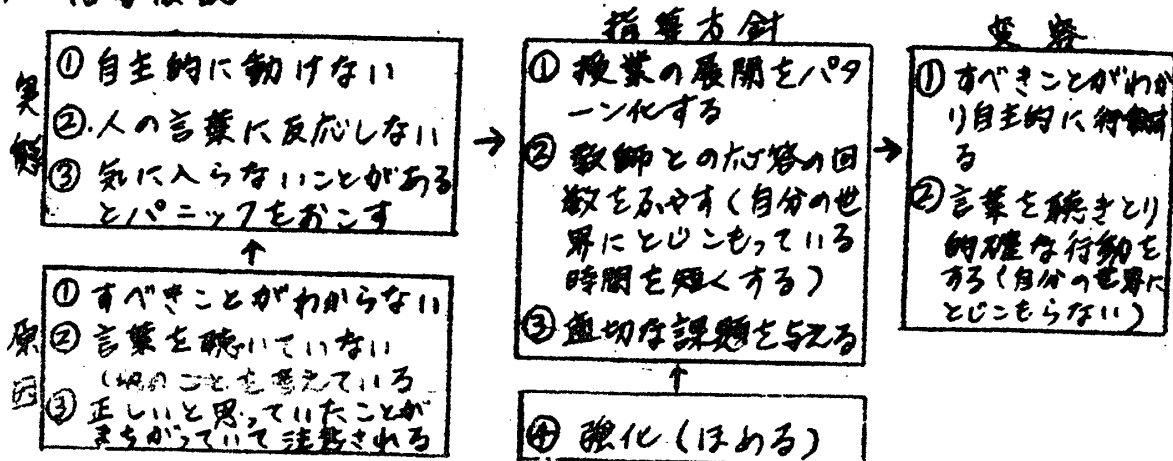 実態
① 自主的に動けない
②.人の言葉に反応しない
③ 気に入らないことがある
とパニックをおこす
原因
① すべきことがわからない
② 言葉を聴いていない
(他のことを考えている
③ 正しいと思っていたことが
まちがっていて注意される
指導方針
① 授業の展開をパタ
ーン化する
② 教師との応答の回
数をふやす(自分の世
界にとじこもっている
時間を短くする)
③ 適切な課題を与える
④ 強化(ほめる)
変容
① すべきことがわか
り自主的に行動す
る
② 言葉を聴きとり
的確な行動を
する(自分の世界に
とじこもらない)